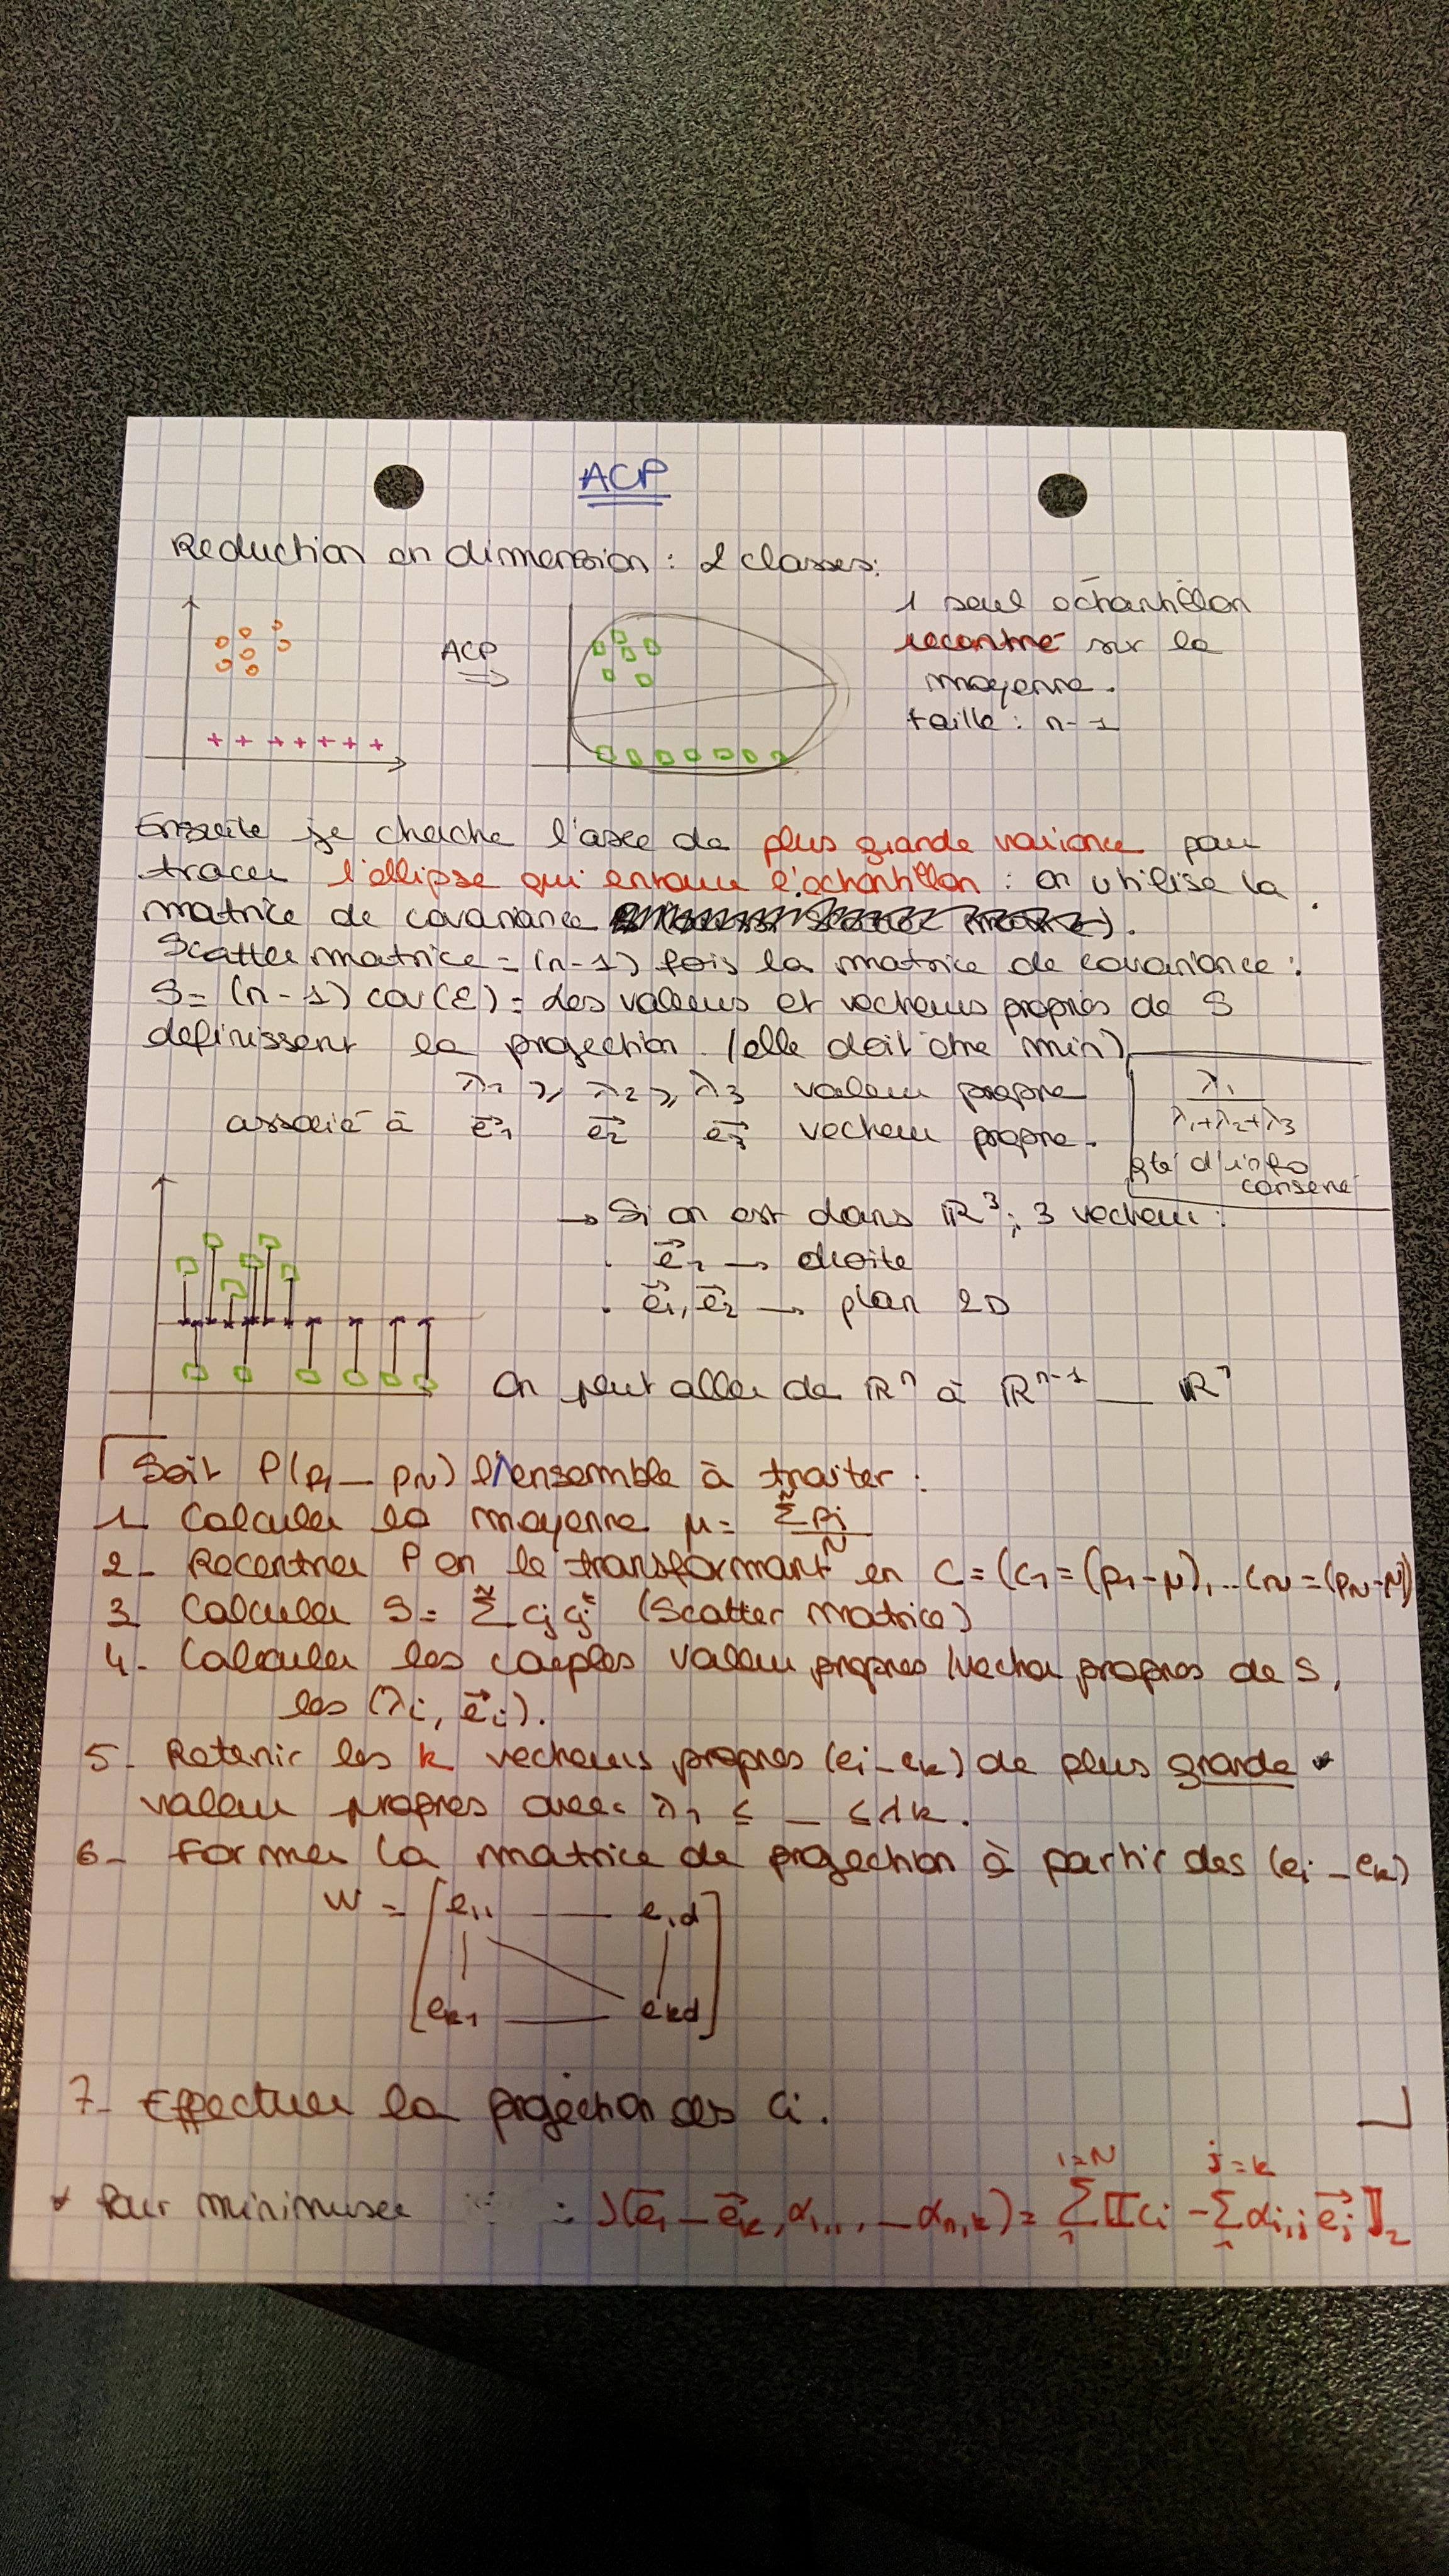 ACP
Reduction en dimension : 2 classes:
1 seul échantillon
recentré sur la
moyenne.
taille : n-1
ACP
⇒
Ensuite je cherche l'axe de plus grande variance pour
tracer l'ellipse qui entoure l'échantillon : on utilise la
matrice de covariance
Scatter matrice = (n-1) fois la matrice de covariance :
S = (n-1) cov(E) = les valeurs et vecteurs propres de S
definissent la projection (elle doit être min)
λ1 ⩾ λ2 ⩾ λ3 valeur propre
associé à e⃗1 e⃗2 e⃗3 vecteur propre.
λ1
λ1+λ2+λ3
qté d'info
conservé
→ Si on est dans ℝ³, 3 vecteur :
. e⃗1 → droite
. e⃗1, e⃗2 → plan 2D
On peut aller de ℝⁿ à ℝⁿ⁻¹ __ ℝ¹
Soit P(p1 _ pN) l'ensemble à traiter :
1- Calculer la moyenne μ = Σᴺ pi / N
2- Recentrer P en le transformant en C = (c1 = (p1-μ), ... cN = (pN-μ))
3 Calculer S = Σᴺ cj cjᵗ (Scatter matrice)
4- Calculer les couples valeur propres / vecteur propres de S,
les (λi, e⃗i).
5- Retenir les k vecteurs propres (ei _ ek) de plus grande *
valeur propres avec λ1 ≤ _ ≤ λk.
6- Former la matrice de projection à partir des (ei _ ek)
W = [e11 __ e1d
ek1 __ ekd]
7- Effectuer la projection des ci.
* Pour minimiser : J(e⃗1 _ e⃗k, α1,1, _ αn,k) = Σ₁ⁱ⁼ᴺ ⟦ci - Σ₁ʲ⁼ᵏ αi,j e⃗j⟧₂